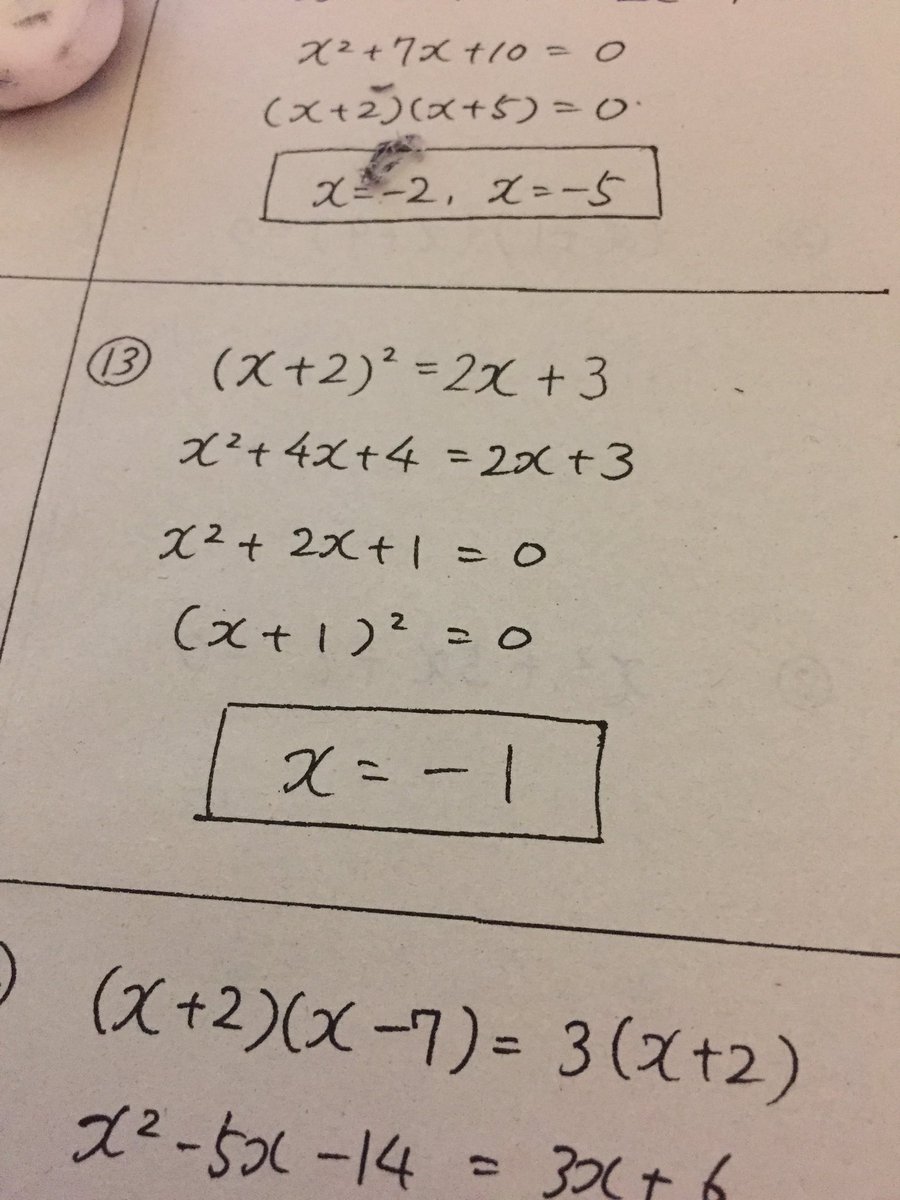 x²+7x+10 = 0
(x+2)(x+5)=0
x=-2, x=-5
⑬ (x+2)²=2x+3
x²+4x+4 =2x+3
x²+2x+1 = 0
(x+1)² = 0
x = -1
(x+2)(x-7)= 3(x+2)
x²-5x-14 = 3x+6